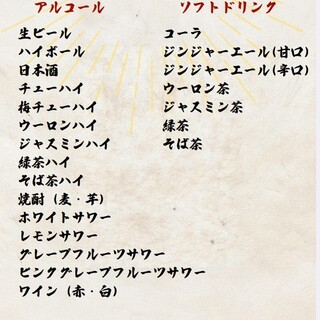 アルコール
生ビール
ハイボール
日本酒
チューハイ
梅チューハイ
ウーロンハイ
ジャスミンハイ
緑茶ハイ
そば茶ハイ
焼酎（麦・芋）
ホワイトサワー
レモンサワー
グレープフルーツサワー
ピンクグレープフルーツサワー
ワイン（赤・白）
ソフトドリンク
コーラ
ジンジャーエール(甘口)
ジンジャーエール(辛口)
ウーロン茶
ジャスミン茶
緑茶
そば茶